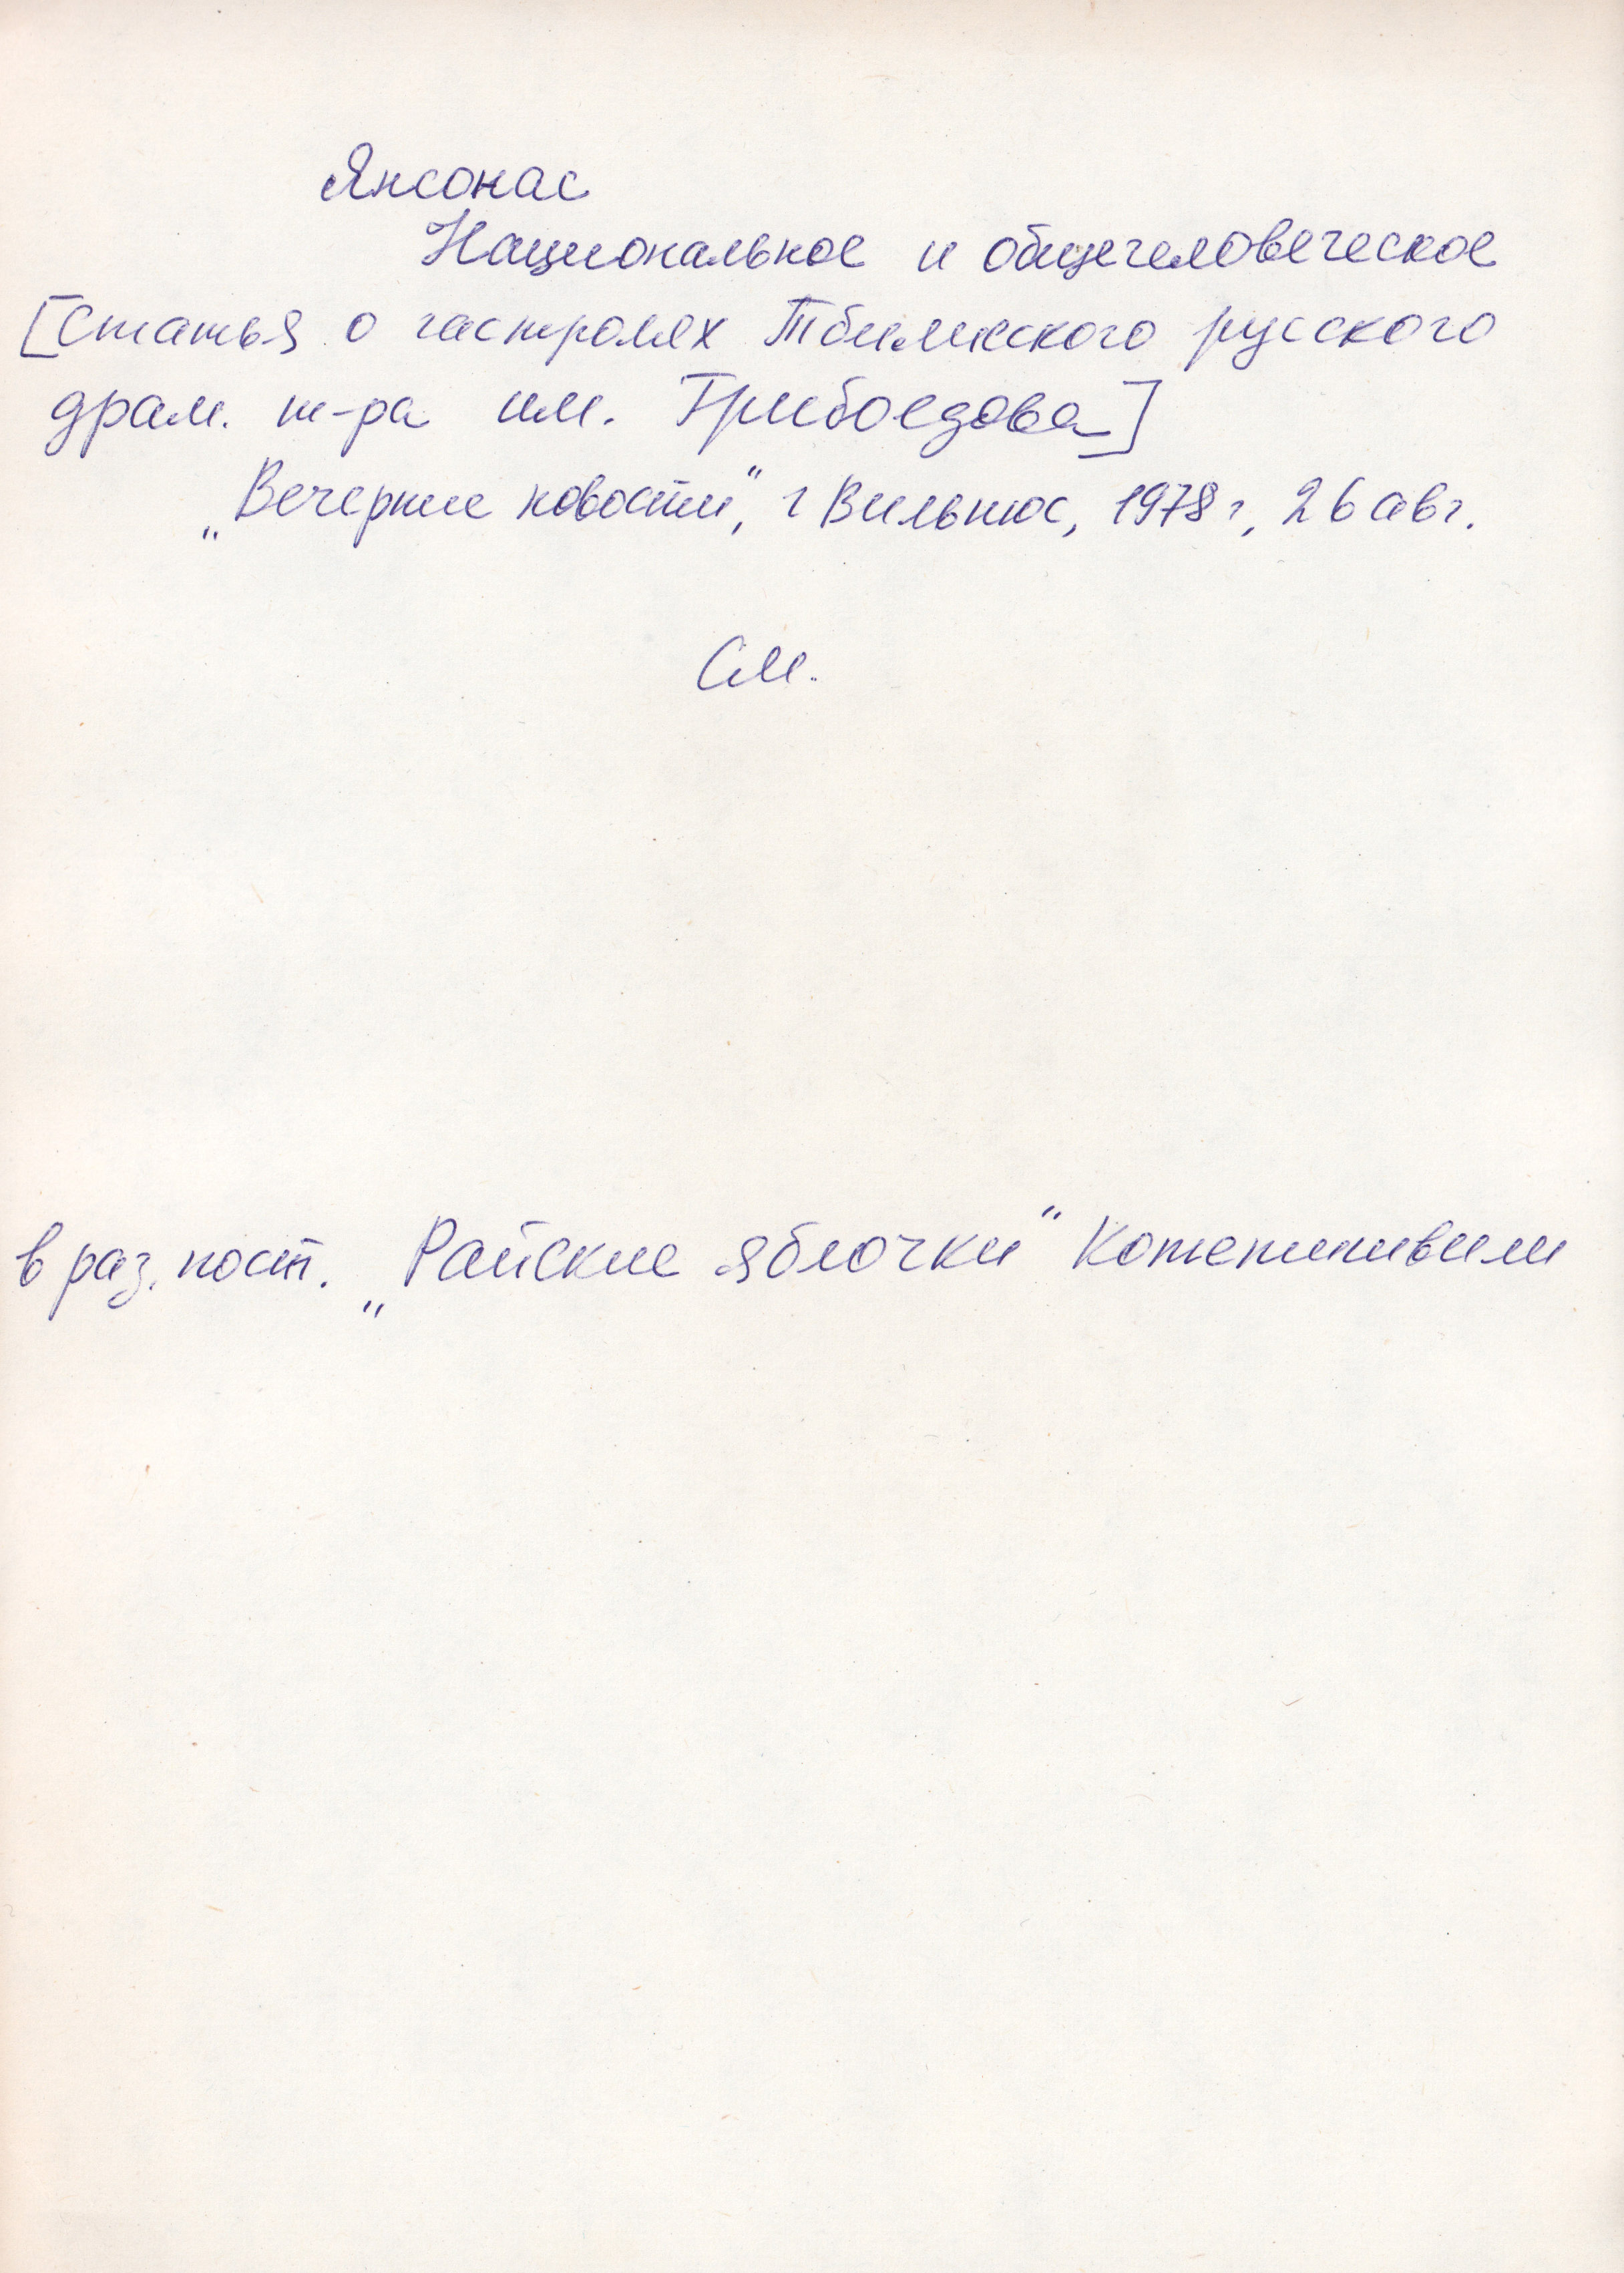 Янсонас
Национальное и общечеловеческое
[Статья о гастролях Тбилисского русского
драм. т-ра им. Грибоедова]
„Вечерние новости", г Вильнюс, 1978 г, 26 авг.
См.
в раз. пост. „Райские яблочки" Котетишвили